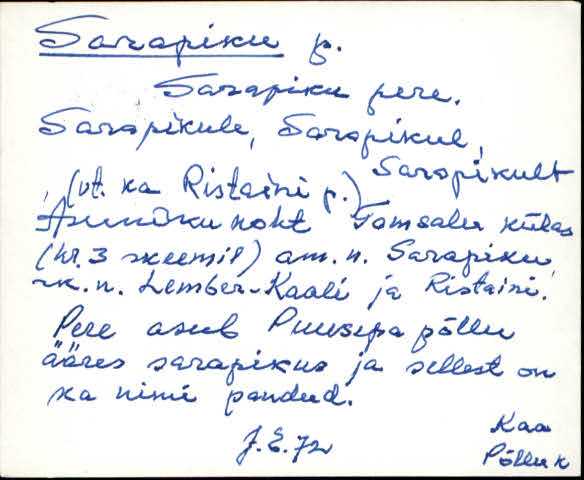 Sarapiku p.
Sarapiku pere.
Sarapikule, Sarapikul,
Sarapikult
(vt. ka Ristaini p.)
Asuniku koht Tamsalu külas
(nr. 3 skeemil) am. n. Sarapiku,
rk. n. Lember-Kaali ja Ristaini.
Pere asub Puusepa põllu
ääres sarapikus ja sellest on
ka nimi pandud.
J.E.72
Kaa
Põllu k